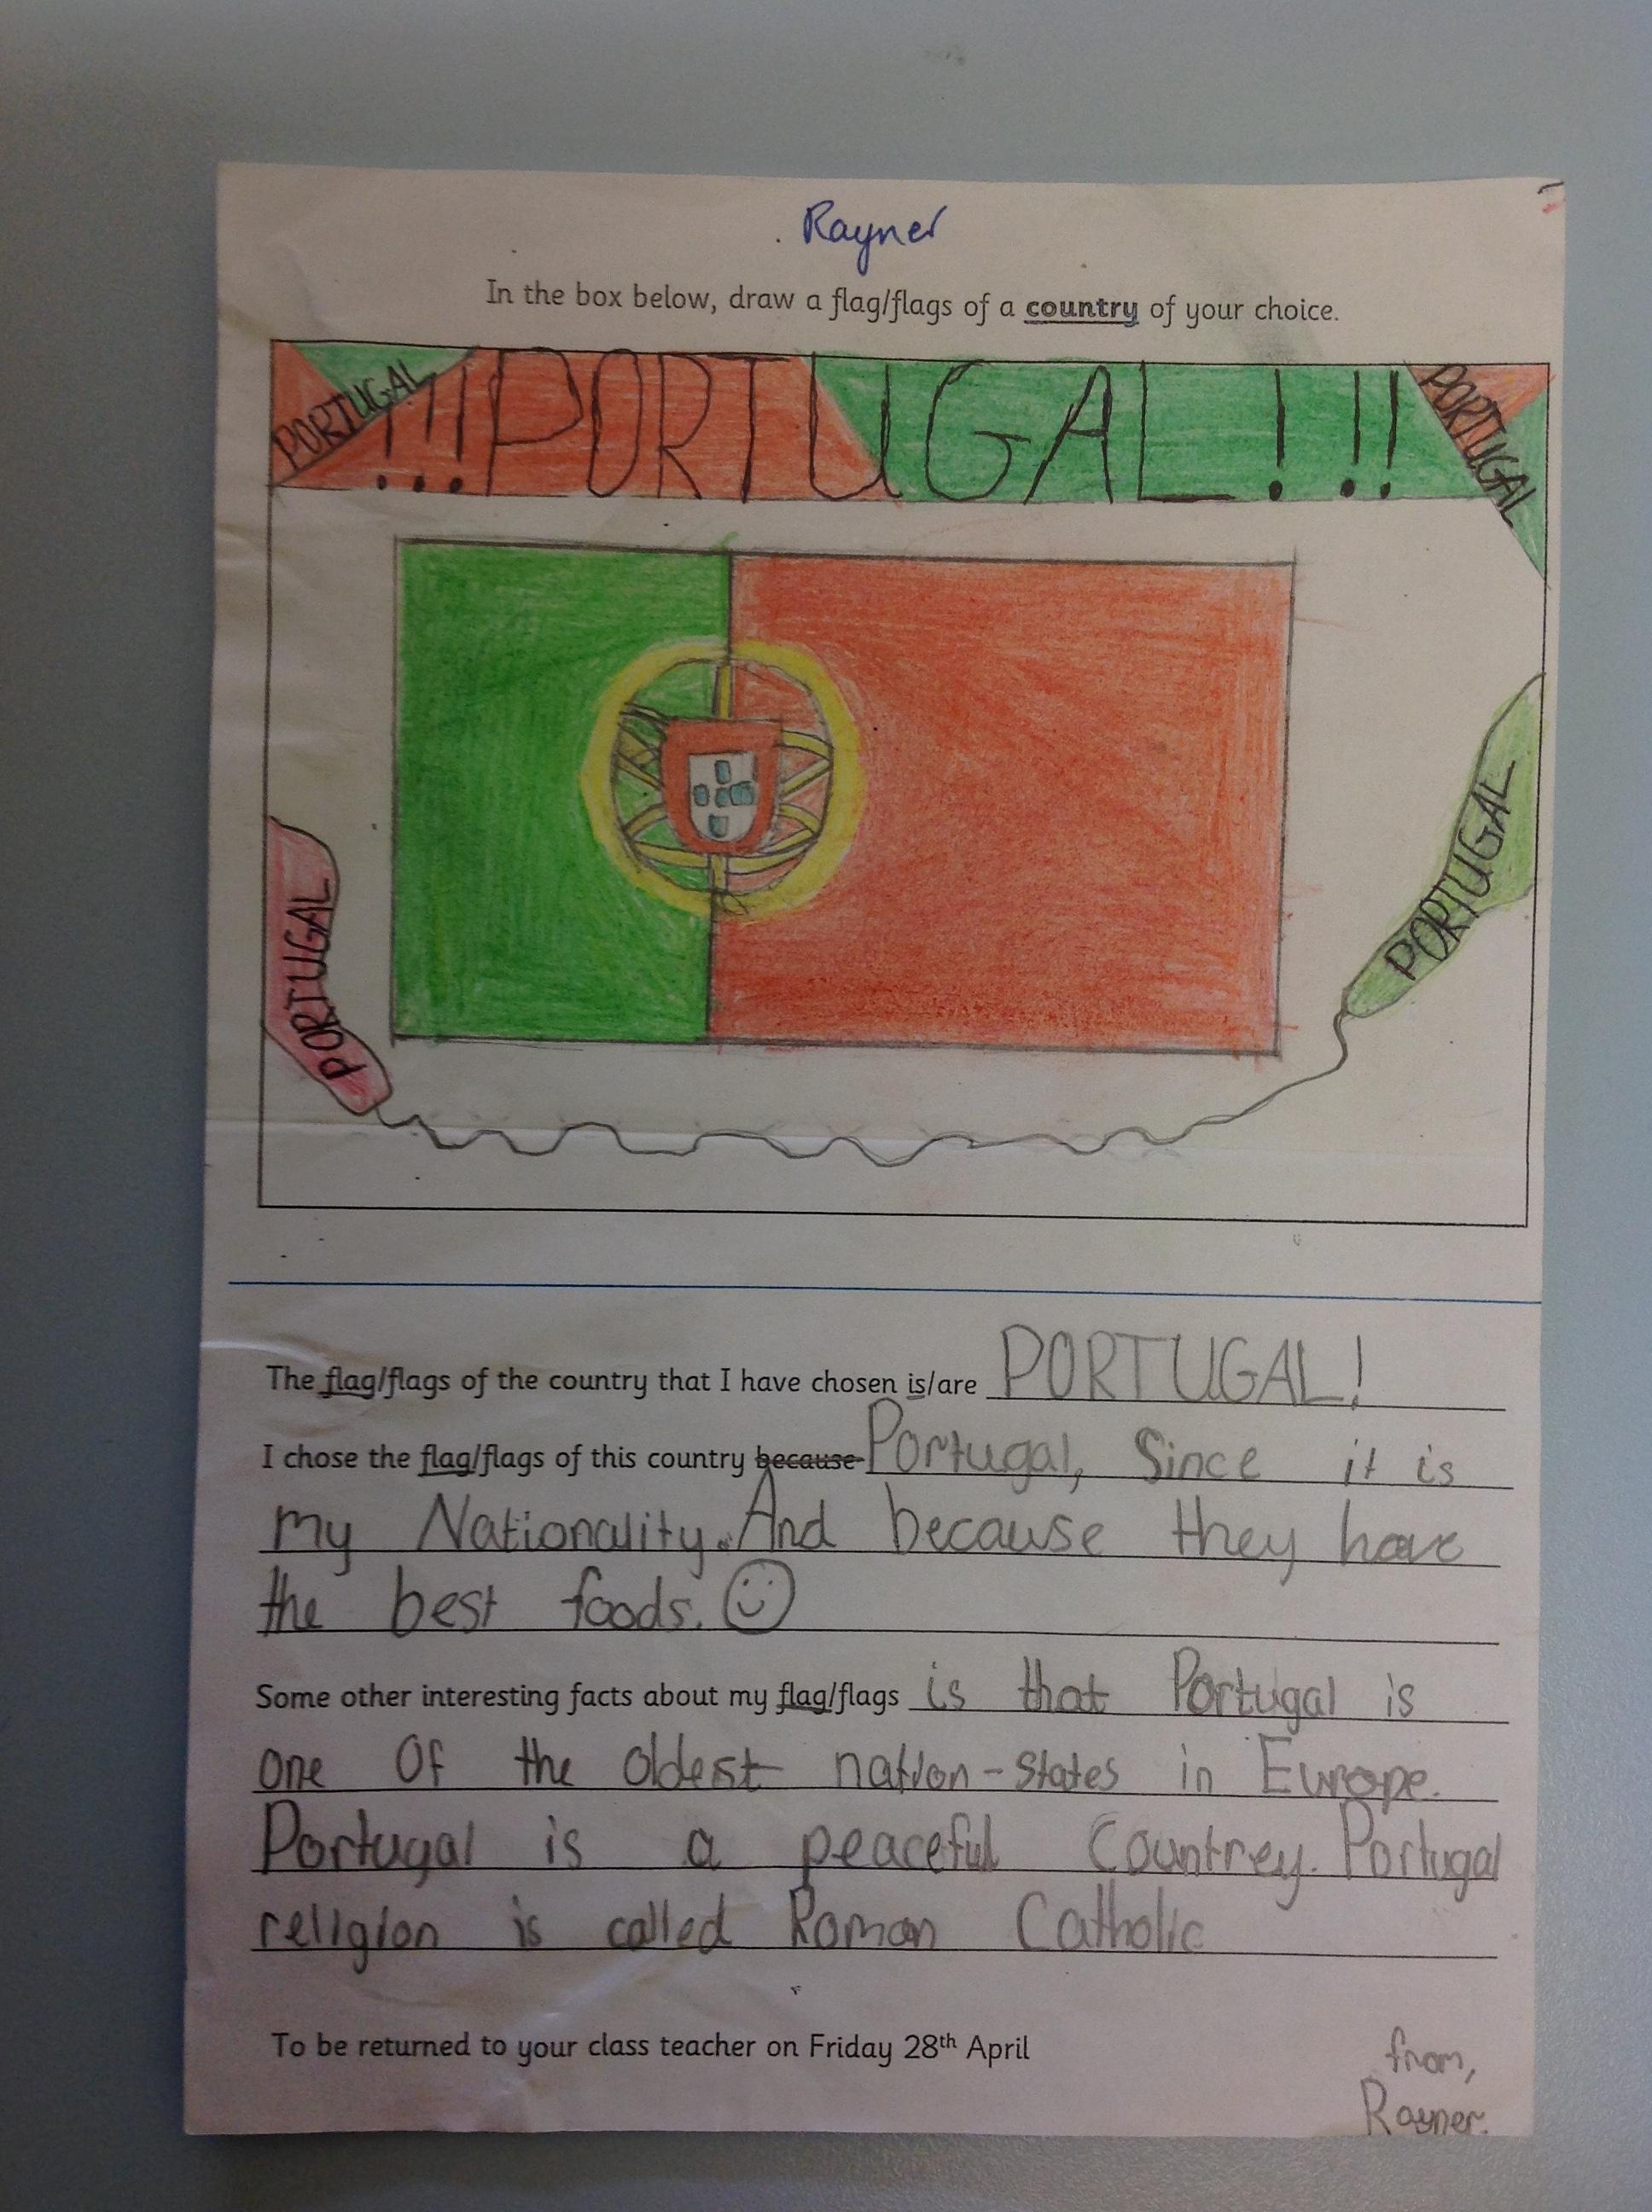 Rayner
In the box below, draw a flag/flags of a country of your choice.
PORTUGAL
!!!PORTUGAL!!!
PORTUGAL
PORTUGAL
PORTUGAL
The flag/flags of the country that I have chosen is/are PORTUGAL!
I chose the flag/flags of this country because Portugal, Since it is
my Nationality. And because they have
the best foods.
Some other interesting facts about my flag/flags is that Portugal is
one Of the oldest nation-states in Europe.
Portugal is a peaceful Countrey. Portugal
religion is called Roman Catholic
To be returned to your class teacher on Friday 28th April
from,
Rayner.